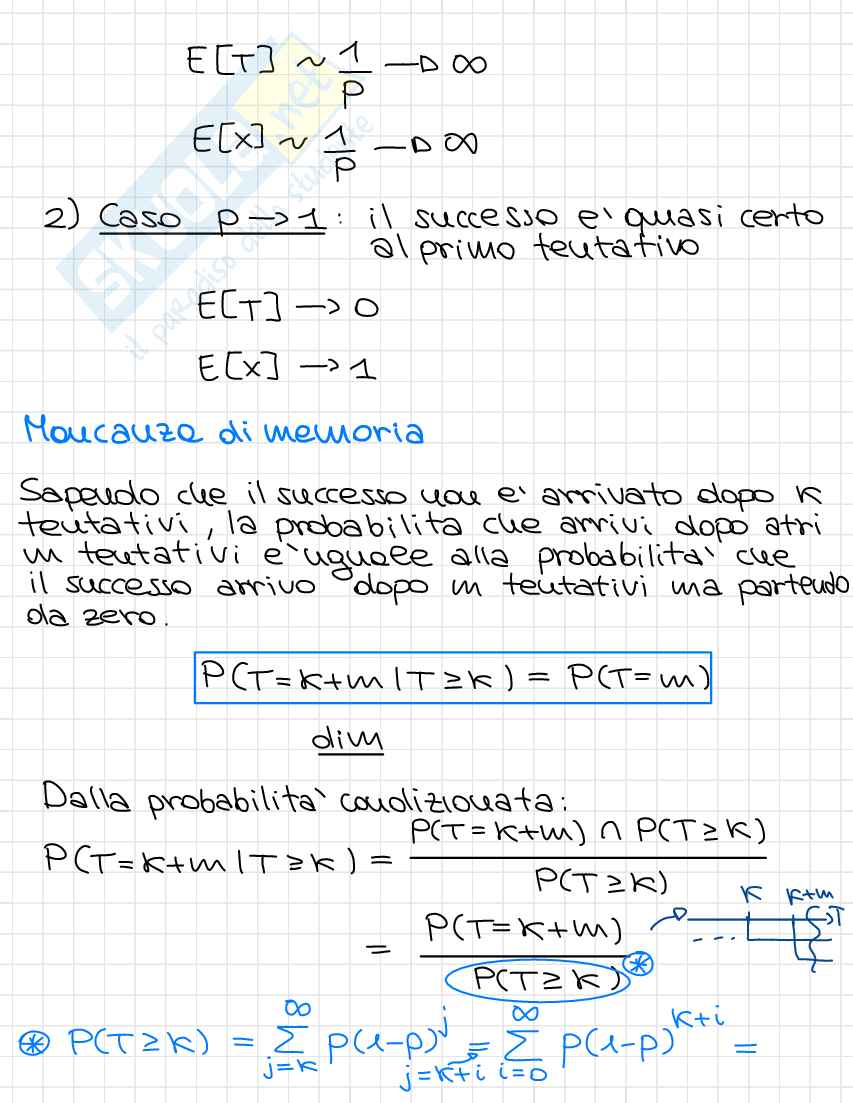 E[T] ~ 1/p → ∞
E[x] ~ 1/p → ∞
2) Caso p → 1 : il successo e' quasi certo
al primo tentativo
E[T] → 0
E[x] → 1
Mancanza di memoria
Sapendo che il successo non e' arrivato dopo k
tentativi, la probabilita che arrivi dopo atri
m tentativi e' uguale alla probabilita' che
il successo arrivo dopo m tentativi ma partendo
da zero.
P(T=k+m | T≥k) = P(T=m)
dim
Dalla probabilita' condizionata:
P(T=k+m | T≥k) = P(T=k+m) ∩ P(T≥k) / P(T≥k)
k k+m T
= P(T=k+m) / P(T≥k) ⊛
⊛ P(T≥k) = ∑_{j=k}^{∞} p(1-p)^j =_{j=k+i} ∑_{i=0}^{∞} p(1-p)^{k+i} =
SKUOLA.net
il paradiso dello studente